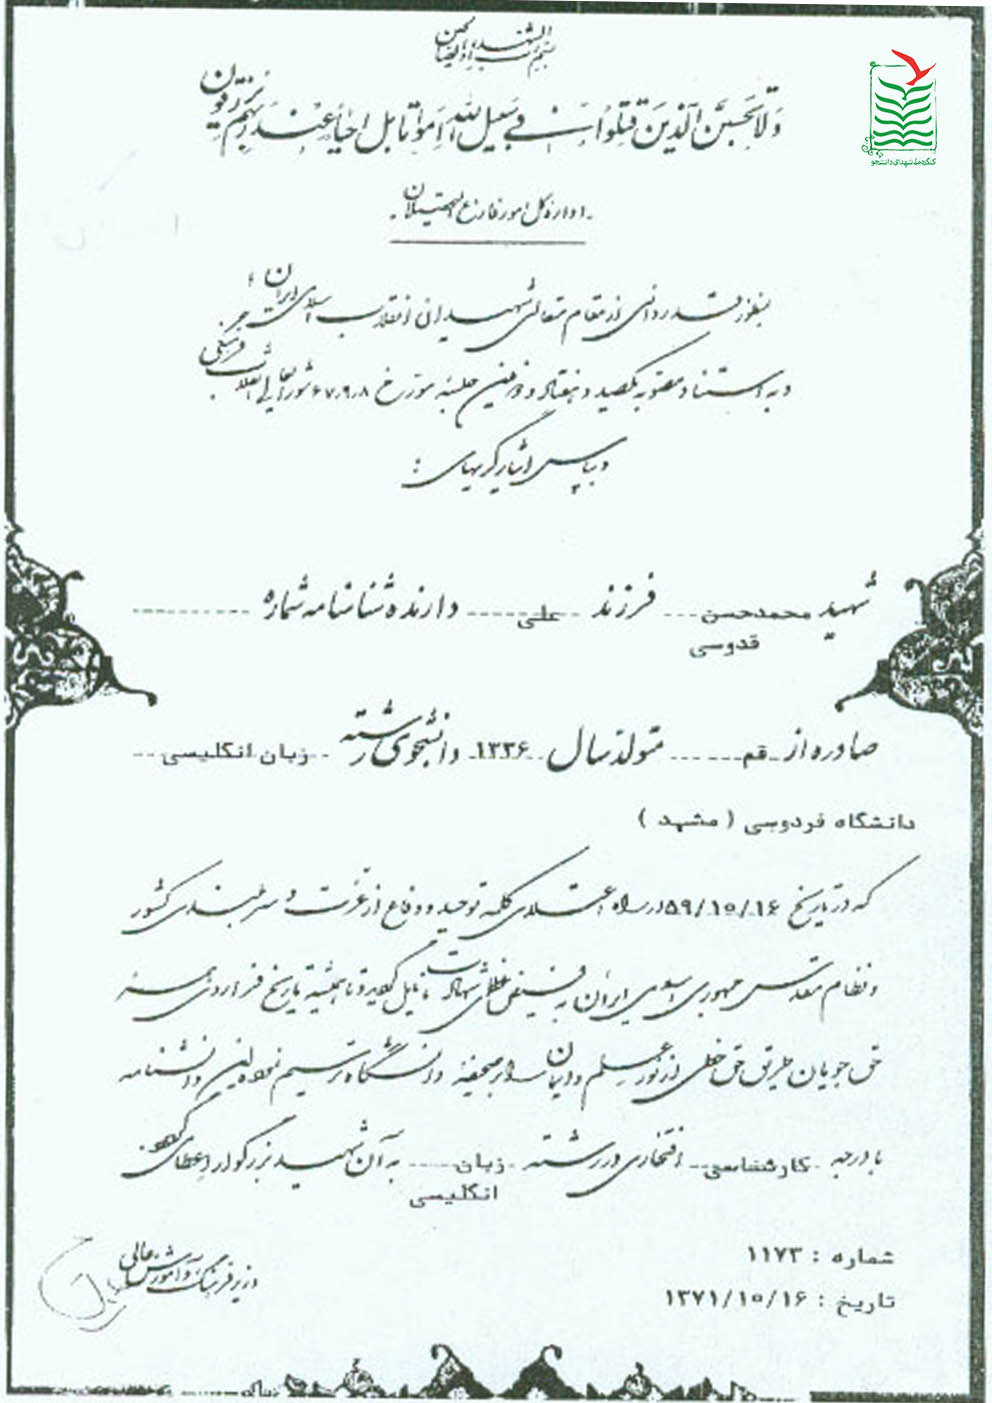 بسم رب الشهداء و الصالحین
کنگره ملی شهدای دانشجو
وَلا تَحسَبَنَّ الَّذینَ قُتِلُوا فی سَبیلِ اللهِ اَمواتا بَل اَحیاءٌ عِندَ رَبِّهِم یُرزَقون
- اداره کل امور فارغ التحصیلان -
بمنظور قدردانی از مقام متعالی شهیدان انقلاب اسلامی ایران
و به استناد مصوبه یکصد و هفتاد و دومین جلسه مورخ ۶۷٫۹٫۸ شورایعالی انقلاب فرهنگی
و بپاس ایثارگریهای :
شهید محمدحسن فرزند علی دارنده شناسنامه شماره
قدوسی
صادره از قم متولد سال ۱۳۳۶ دانشجوی رشته زبان انگلیسی
دانشگاه فردوسی ( مشهد )
که در تاریخ ۵۹/۱۰/۱۶ در راه اعتلای کلمه توحید و دفاع از عزت و سربلندی کشور
و نظام مقدس جمهوری اسلامی ایران به فیض عظمای شهادت نایل گردید و تا همیشه تاریخ فرا روی همه
حق جویان طریق حق خطی از نور علم و ایمان را بر صحیفه دانشگاه ترسیم نمود این دانشنامه
با درجه کارشناسی افتخاری در رشته زبان به آن شهید بزرگوار اعطا می گردد.
انگلیسی
شماره : ۱۱۷۳
تاریخ : ۱۳۷۱/۱۰/۱۶
وزیر فرهنگ و آموزش عالی